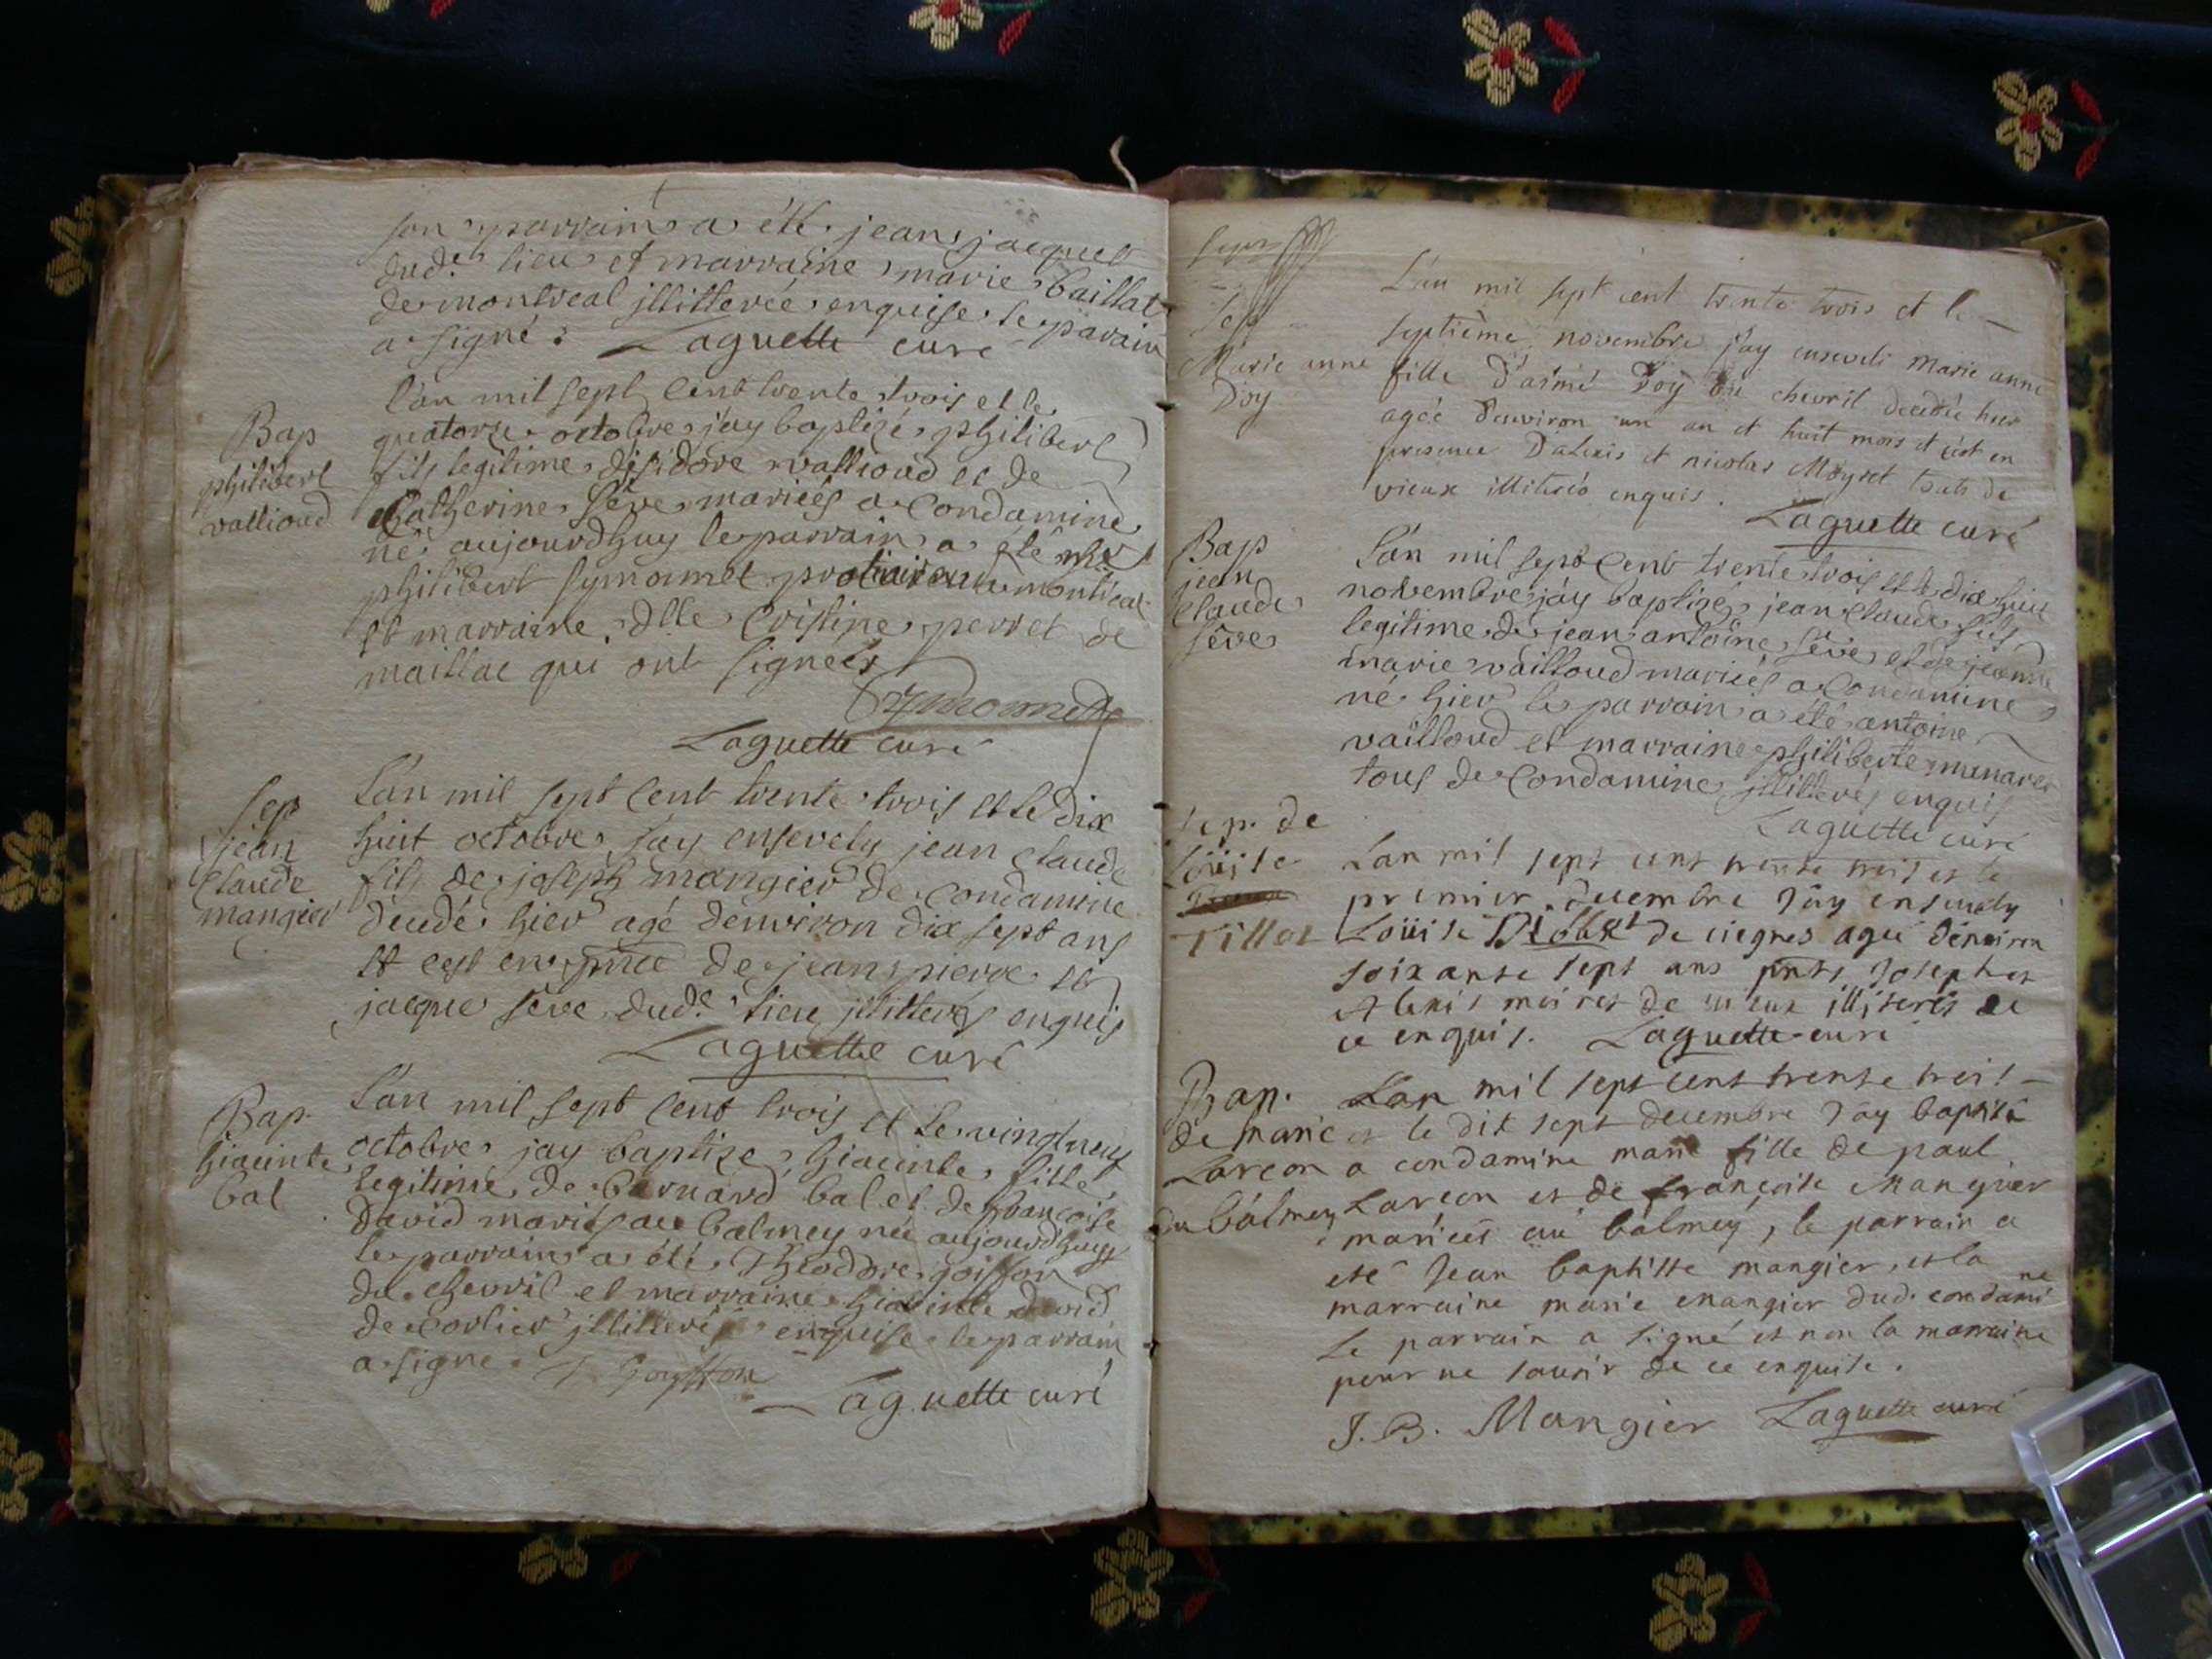 son parrain a été jean jacquet
dud.e lieu et marraine marie baillat
de montreal jllitterée enquise le parain
a signé : Laguette curé
Bap
philibert
vallioud
L'an mil sept cent trente trois et le
quatorze octobre j'ay baptizé philibert
fils legitime d'isidore vallioud et de
Catherine séve mariés a Condamine
né aujourdhuy le parrain a été
philibert symonnet montreal
et marraine dlle Cristine perret de
maillac qui ont signées
Symonnet
Laguette curé
Sep
jean
Claude
mangier
L'an mil sept cent trente trois et le dix
huit octobre jay ensevely jean claude
fils de joseph mangier de Condamine
decedé hier agé denviron dix sept ans
et cest en pnce de jean pierre et
jacque séve dud.e lieu jllitterés enquis
Laguette curé
Bap
hiacinte
bal
L'an mil sept cent trois et le vingtneuf
octobre jay baptize hiacinte fille
legitime de bernard bal et de francoise
david mariés au balmey née aujourdhuy
le parrain a été Theodore goiffon
du chevril et marraine hiacinte david
de Corlier jllitteré enquise le parrain
a signe T Goyffon
Laguette curé
Sep
Marie anne
Doy
L'an mil sept cent trente trois et le
septième novembre j'ay enseveli Marie anne
fille d'aimé Doy du chevril decedée hier
agée d'environ un an et huit mois et c'est en
presence D'alexis et nicolas Moyret touts de
vieux illiterés enquis. Laguette curé
Bap
jean
Claude
séve
L'an mil sept cent trente trois et le dix huit
novembre jáy baptizé jean Claude fils
legitime de jean antoine séve et de jeanne
marie vailloud mariés a Condamine
né hier le parrain a été antoine
vailloud et marraine philiberte
tous de Condamine jllitterés enquis
Laguette curé
Sep. de
Loüise
Tillet
Lan mil sept cent trente trois et le
premier decembre Jáy ensevely
Loüise de ciegnes agee dénviron
soixante sept ans pnts Joseph et
Alexis moiret de vieux illiterés de
ce enquis. Laguette curé
Bap.
de marie
Larcon
du bálmey
Lan mil sept cent trente trois
et le dix sept decembre Jáy baptisé
a condamine marie fille de paul
Larcon et de francoise Mangier
mariés au bálmey, le parrain a
eté Jean baptiste mangier, et la
marraine marie mangier dud. condamine
Le parrain a signé et non la marraine
pour ne scavoir de ce enquise.
J. B. Mangier Laguette curé